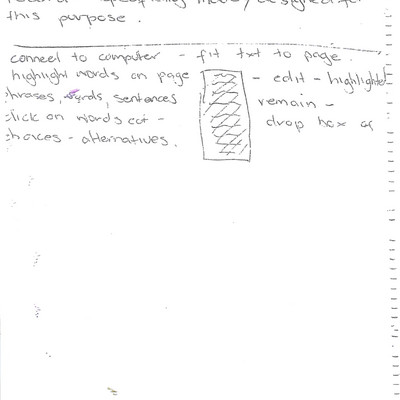 this purpose.
connect to computer - fit txt to page.
highlight words on page
phrases, words, sentences
click on words cot -
choices - alternatives.
- edit - highlighted
remain -
drop box of